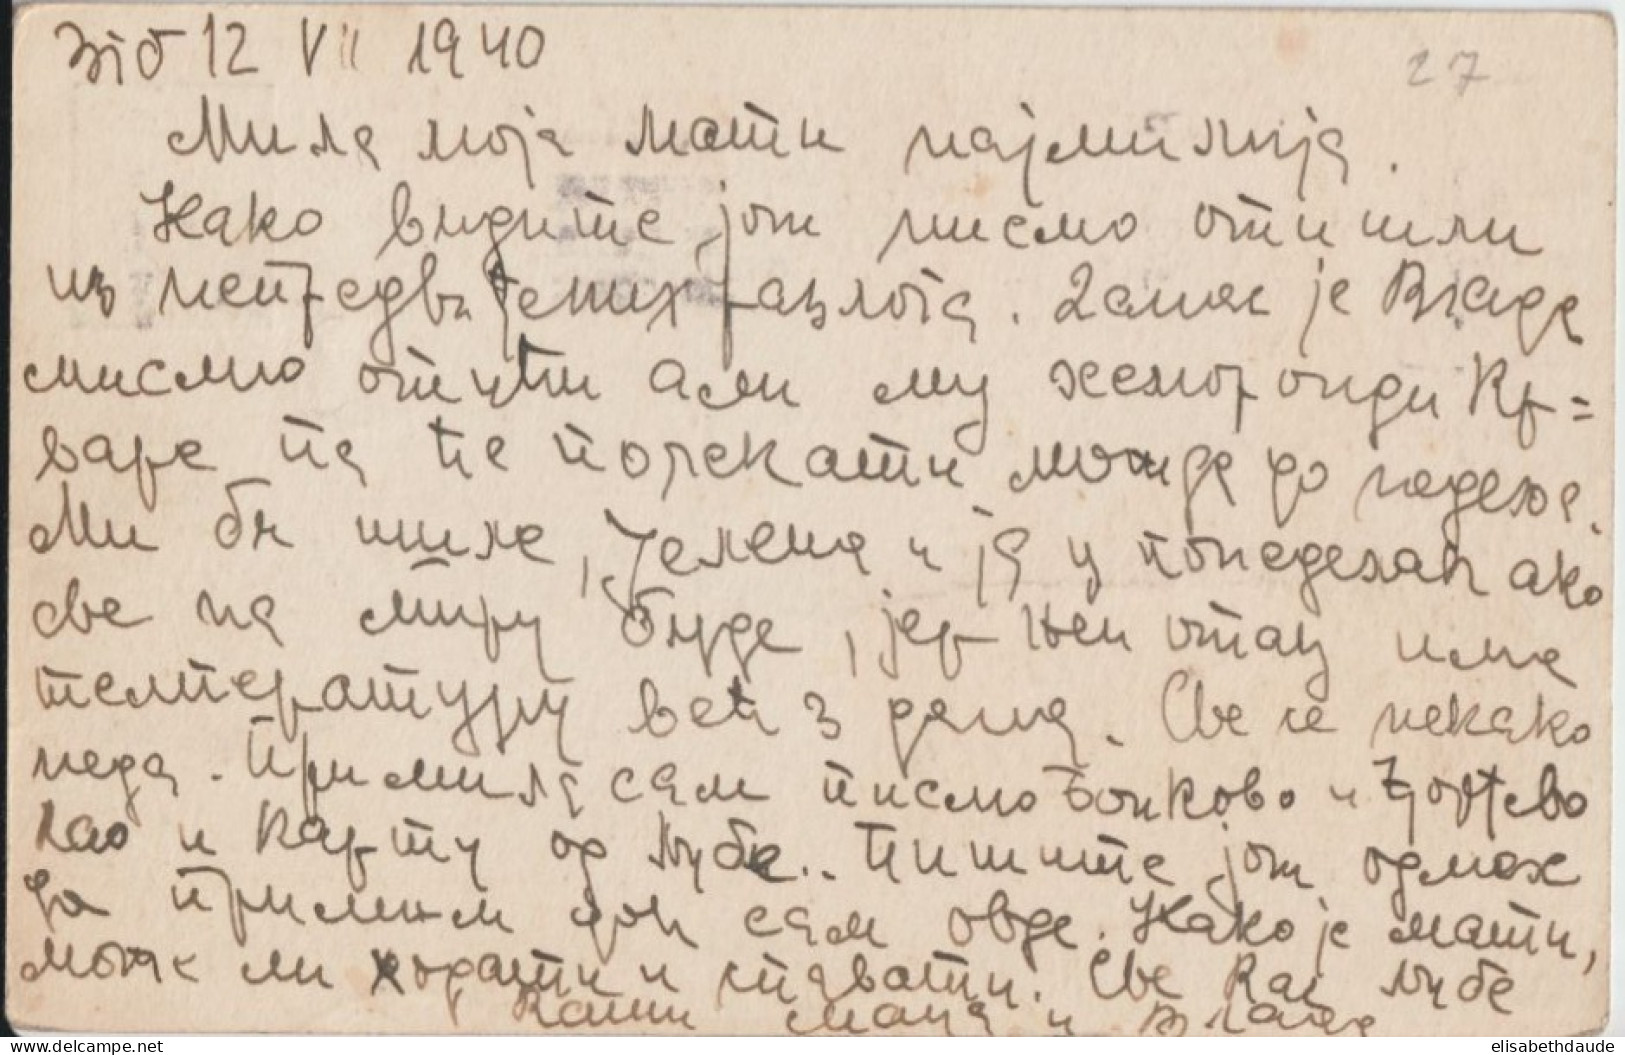 12 VII 1940
27
Мила моја мати најмилија.
Како видите још нисмо отишли
из непредвиђених разлога. Данас је Влада
мислио отићи али му хемороиди кр=
варе па ће почекати можда до недеље.
Ми би ишле, Јелена и ја у понедељак ако
све на миру буде, јер њен отац има
температуру већ 3 дана. Све се некако
не да. Примила сам писмо и
као и карту од Љубе.. Пишите још одмах
да примим док сам овде. Како је мати,
може ли ходати и спавати. Све вас љубе
Ваши Маца и Влада
www.delcampe.net
elisabethdaude